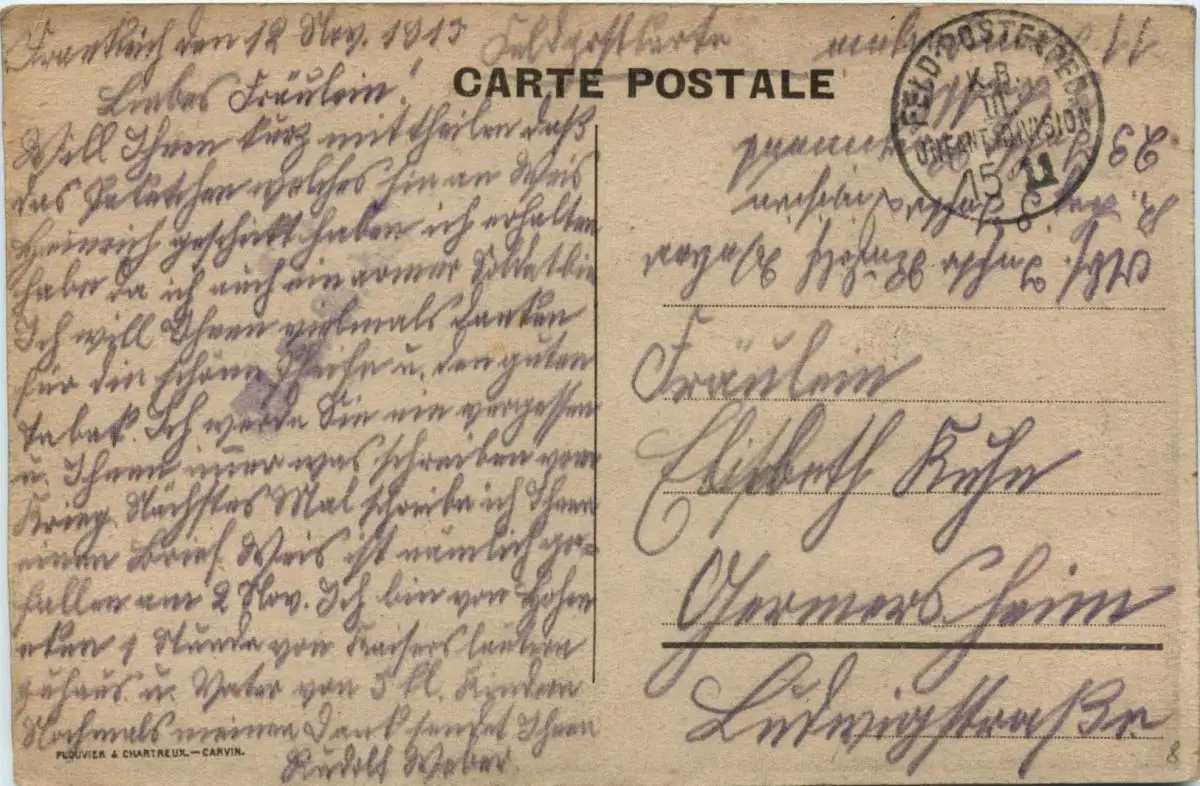 Frankreich den 12 Nov. 1915 Feldpostkarte
CARTE POSTALE
Liebes Fräulein!
Will Ihnen kurz mittheilen daß
das Paketchen welches sie an Weis
Heinrich geschikt haben ich erhalten
habe da ich auch ein armer Soldat bin
Ich will Ihnen vielmals danken
für die schöne Pfeife u. den guten
Tabak. Ich werde Sie nie vergessen
u. Ihnen imer was schreiben vom
Krieg. Nächstes Mal schreibe ich Ihnen
einen Brief. Weis ist nämlich ge-
fallen am 2 Nov. Ich bin von Hohen
eken 1 Stunde von Kaiserslautern
zuhaus u. Vater von 5 kl. Kindern
Nochmals meinen Dank sendet Ihnen
Rudolf Weber.
PLOUVIER & CHARTREUX.—CARVIN.
FELD-POSTEXPED.
K.B.
III.
INFANT. DIVISION
15 11
Abs. Inftr. Rudolf Weber
23
Fräulein
Elisabeth Kuhn
Germersheim
Ludwigstraße
8